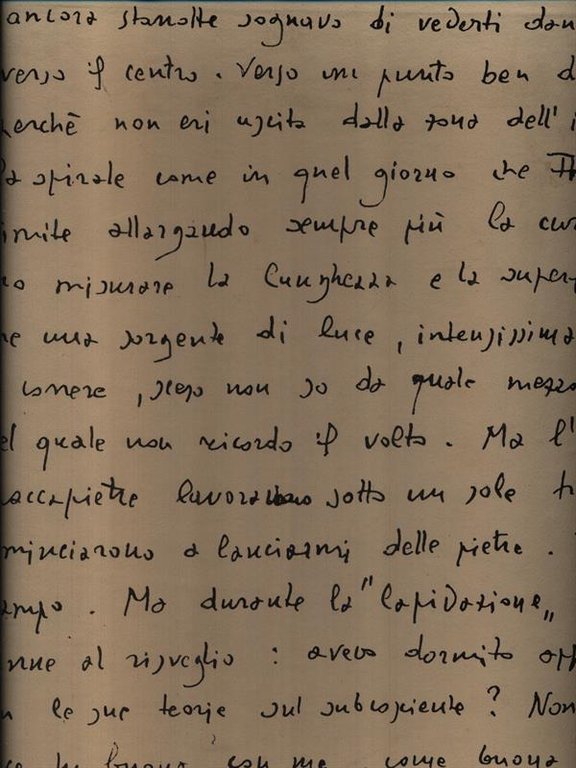 ancora stanotte sognavo di vederti dan
verso il centro. Verso un punto ben d
perchè non eri uscita dalla zona dell' i
la spirale come in quel giorno che
imite allargando sempre più la cur
misurare la lunghezza e la super
una sorgente di luce, intensissima
correre, sceso non so da quale mezzo
el quale non ricordo il volto. Ma l'
accapietre lavoravano sotto un sole tr
minciarono a lanciarmi delle pietre.
ampo. Ma durante la "lapidazione„
nne al risveglio: avevo dormito opp
n le sue teorie sul subcosciente? Non
buona con me, come buona